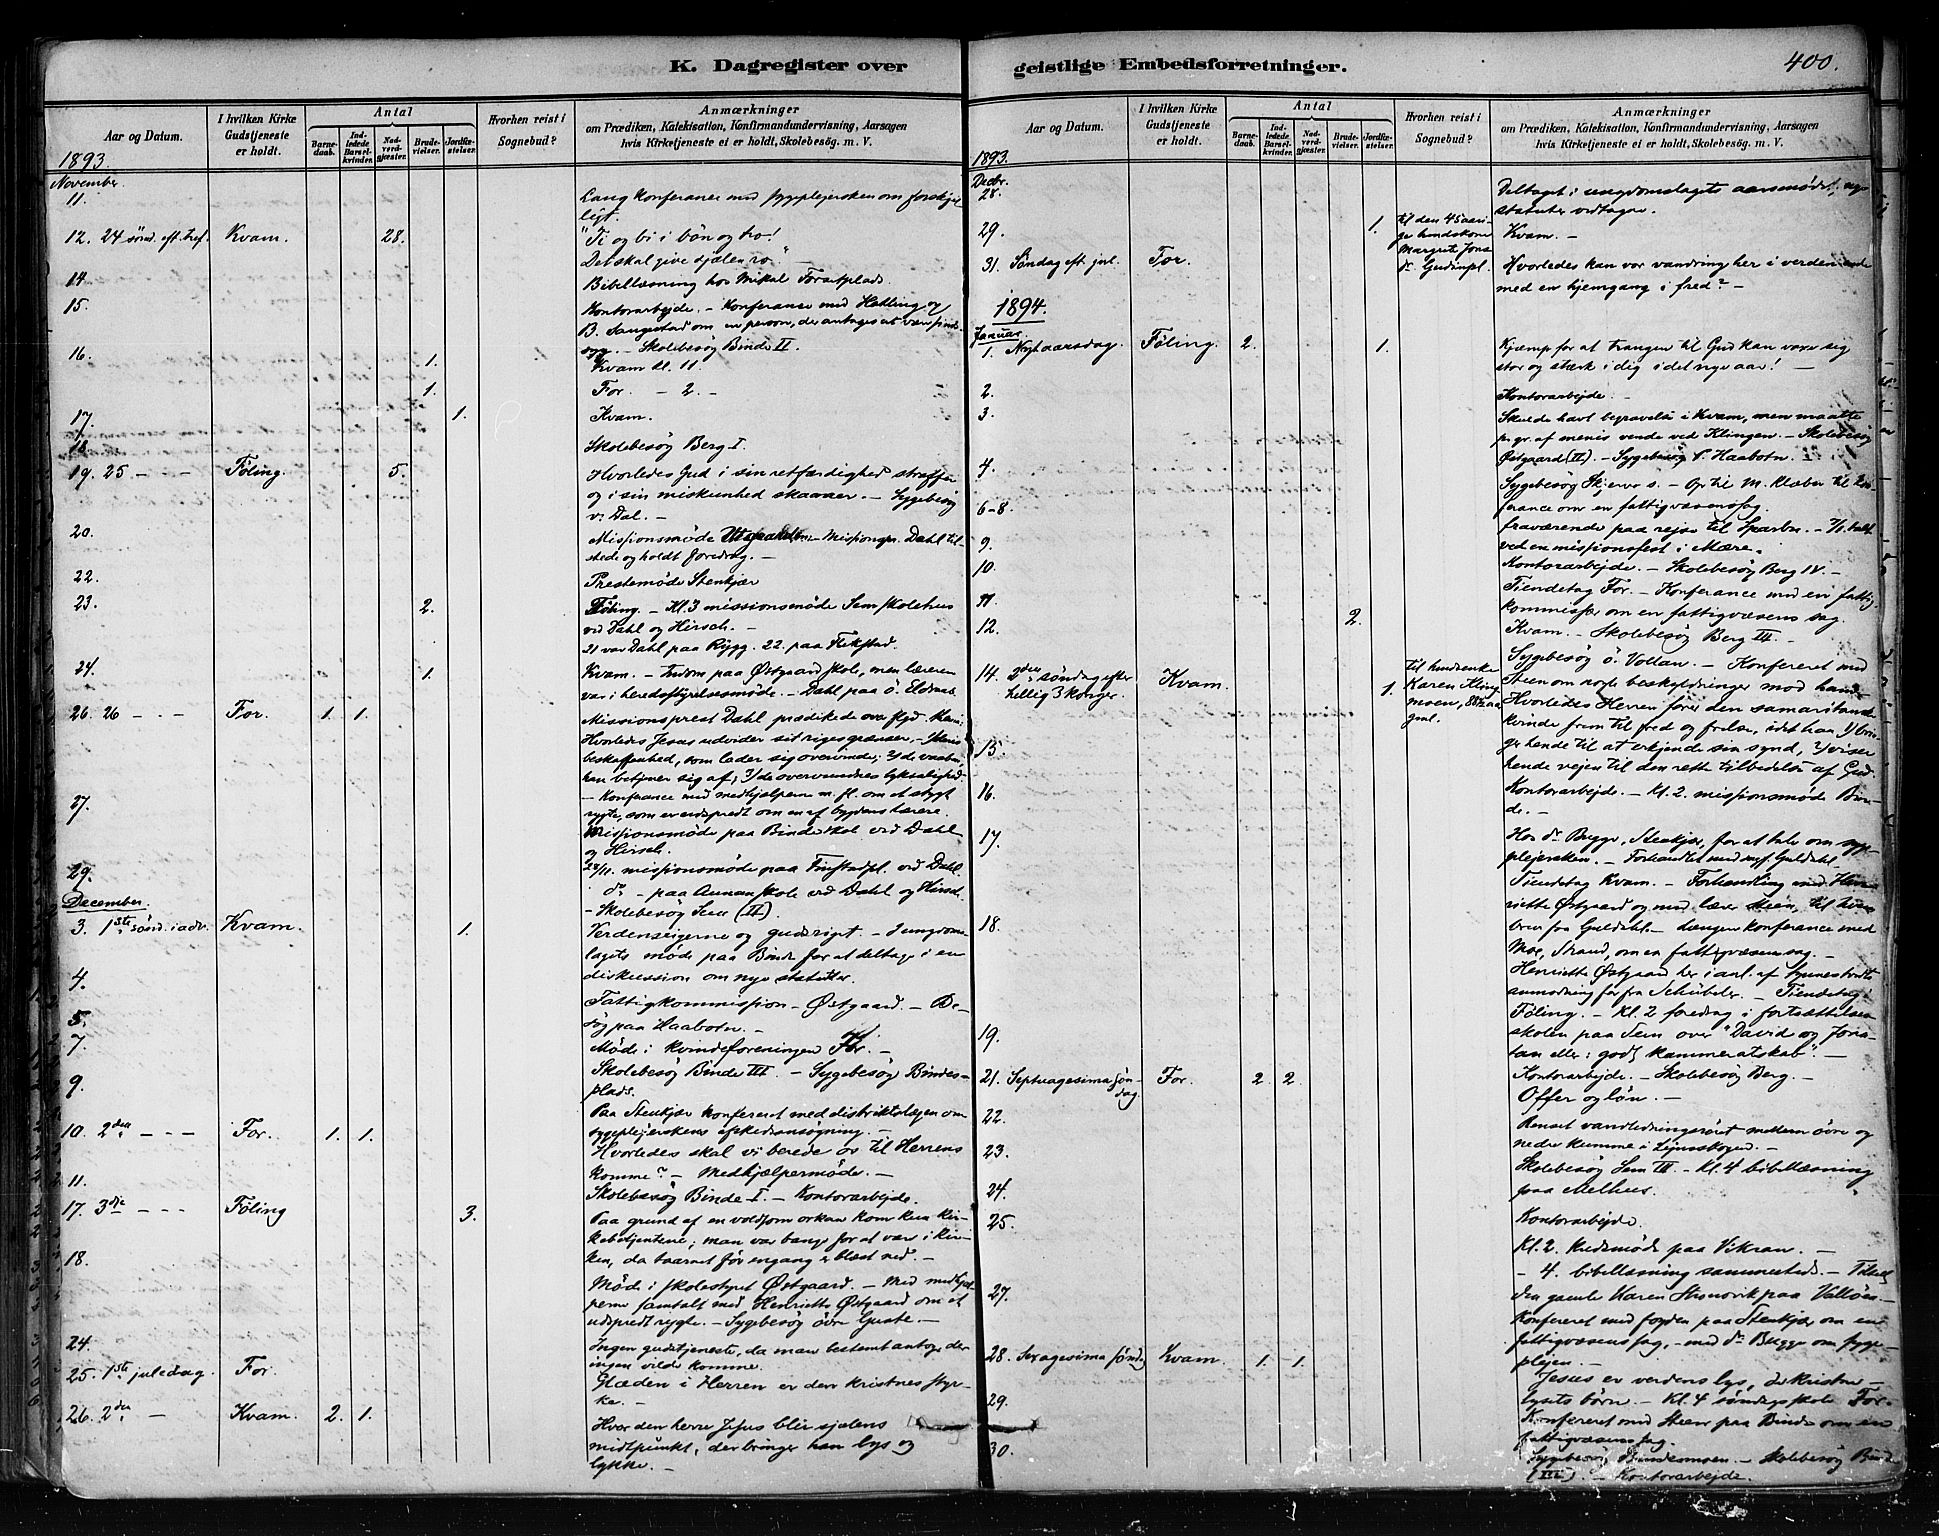 K. Dagregister over
Aar og Datum.
I hvilken Kirke Gudstjeneste er holdt.
Antal
Barnedaab.
Indledede Barselkvinder.
Nadverdgjester.
Brudevielser.
Jordfæstelser.
Hvorhen reist i Sognebud?
Anmærkninger
om Prædiken, Katekisation, Konfirmandundervisning, Aarsagen
hvis Kirketjeneste ei er holdt, Skolebesøg. m. V.
1893.
November.
11.
Lang konferance med sygeplejersken om forskjel-
ligt.
12. 24 sønd. eft. tref. Kvam. 28. "Ti og bi i bön og tro!
Det skal give sjælen ro." -
14. Bibellæsning hos Mikal Forsetplads.
15. Kontorarbejde. - Konferanse med Hatling og
B. Saugestad om en person, der antages at være sinds-
syg. - Skolebesög Binde II.
16. 1. Kvam kl. 11.
1. For. - 2. -
17. 1. Kvam.
18. Skolebesög Berg I.
19. 25 - - - Föling. 5. Hvorledes Gud i sin retfærdighed straffer
og i sin miskunhed skaaner. - Sygebesög
v. Dal. -
20. Missionsmöde - Missionspr. Dahl til-
stede og holdt foredrag. -
22. Prestemöde Stenkjær
23. 2. Föling. - Kl. 3 missionsmöde Sem skolehus
ved Dahl og Hirsch. -
21 var Dahl paa Rygg. 22. paa Fikstad.
24. 1. Kvam. - Indom paa Østgaard skole, men læreren
var i herredsstyrelsesmöde. - Dahl paa ö. Eldnæs
26. 26 - - - For. 1. 1. Missionsprest Dahl prædikede over
Hvorledes Jesus udvider sit riges grænser. -
beskaffenhed, som lader sig overvinde; 2/ de vaaben,
han betjener sig af; 3/ de overvundnes lyksalighed.
27. - Konferance med medhjælperne m. fl. om et stygt
rygte, som er udspredt om en af bygdens lærere.
Missionsmöde paa Binde skol. ved Dahl
og Hirsch.
29. 28/11. missionsmöde paa Finstadpl. ved Dahl.
do - paa Aunan skole ved Dahl og Hirsch.
- Skolebesög Sem (II).
December.
3. 1ste sönd. i adv. Kvam. 1. Verdenseigerne og gudsriget. - Ungdoms-
lagets möde paa Binde for at deltage i en
diskussion om nye statutter.
4. Fattigkommission - Østgaard. - Be-
sög paa Haabotn. -
5. Möde i kvindeforeningen For. -
7. Skolebesög Binde III. - Sygebesög Bindes-
plads.
9. Paa Stenkjær konfereret med distriktslægen om
sygeplejerskens afskedsansøgning. -
10. 2den - - - For. 1. 1. Hvorledes skal vi berede os til Herrens
komme? - Medhjælpermöde. -
11. Skolebesög Binde I. - Kontorarbejde.
17. 3die - - - Föling 3. Paa grund af en voldsom orkan kom kun kir-
kebetjentene; man var bange for at være i kir-
ken, da taarnet för engang er blæst ned. -
18. Möde i skolestyret Østgaard. - Med medhjæl-
perne samtalt med Henriette Østgaard om et
udspredt rygte. - Sygebesög övre Guste. -
24. Ingen gudstjeneste, da man bestemt antog, der
ingen vilde komme.
25. 1ste juledag. For. Glæden i Herren er den kristnes styr-
ke. -
26. 2den - Kvam. 2. 1. Hvor den herre Jesus blir sjælens
midtpunkt, der bringer han lys og
lykke. -
geistlige Embedsforretninger.
400.
Aar og Datum.
I hvilken Kirke Gudstjeneste er holdt.
Antal
Barnedaab.
Indledede Barselkvinder.
Nadverdgjester.
Brudevielser.
Jordfæstelser.
Hvorhen reist i Sognebud?
Anmærkninger
om Prædiken, Katekisation, Konfirmandundervisning, Aarsagen
hvis Kirketjeneste ei er holdt, Skolebesøg. m. V.
1893.
Decbr.
28. Deltaget i ungdomslagets aarsmöde; nye
statuter vedtages.
29. 1. til den 45 aari- Kvam. -
ge huuskone
Margrete Jons
dr. Gudimpl.
31. Söndag eft. jul. For. Hvorledes kan vor vandring her i verden ende
med en hjemgang i fred? -
1894.
Januar.
1. Nytaarsdag. Föling. 2. 1. Kjæmp for at trangen til Gud kan voxe sig
stor og stærk i dig i det nye aar! -
2. Kontorarbejde.
3. Skulde havt begravelse i Kvam, men maatte
p. gr. af menis vende ved Klingen. - Skolebesög
Østgaard (II). - Sygebesög P. Haabotn.
4. Sygebesög Skjerve s. - Op til M. Klæber til kon-
ferance om en fattigvæsenssag.
6-8. fraværende paa rejse til Sparbu. - talt
ved en missionsfest i Mære.
9. Kontorarbejde. - Skolebesög Berg IV. -
10. Tiendetag For. - Konferance med en fattig-
kommissær om en fattigvæsens sag.
11. 2. Kvam. - Skolebesög Berg III. -
12. Sygebesög ö. Vollan. - Konfereret med
Steen om nogle beskyldninger mod ham.
14. 2den söndag efter Kvam. 1. til huusenke
hellig 3 konger. Karen Kling-
moen, 88½ aar
gml.
Hvorledes Herren fører den samaritanske
kvinde frem til fred og frelse, idet han 1/ brin-
ger hende til at erkjende sin synd, 2/ viser
hende vejen til den rette tilbedelse af Gud.
15. Kontorarbejde. - Kl. 2. missionsmöde Bin-
de. -
16. Hos dr Bugge, Stenkjær, for at tale om syge-
plejersken. - Forhandlet med Guldahl.
17. Tiendetag Kvam. - Forhandling med Hen-
riette Østgaard og med lærer Steen, til
brev fra Guldahl. - Længere konferance med
Moe, Strand, om en fattigvæsenssag. -
18. Henriette Østgaard her i anl. af
anmodning fra Schübeler. - Tiendetag i
Föling. - Kl. 2 foredrag i fortsættelses-
skolen paa Sem over "David og Jona-
tan eller: godt kammeratskab". -
19. Kontorarbejde. - Skolebesög Berg. -
21. Septuagesima sön- For. 2. 2. Offer og lön. -
dag.
22. Renset vandledningsröret mellem övre og
nedre kumme i
23. Skolebesög Sem III. - Kl. 4 bibellæsning
paa Melhus.
24. Kontorarbejde.
25. Kl. 2. Kredsmöde paa Vikran. -
- 4. bibellæsning sammesteds. - Tilseet
den gamle Karen paa
27. Konfereret med fogden paa Stenkjær om en
fattigvæsenssag, - med dr Bugge om syge-
plejen. -
28. Sexagesima sønd. Kvam. 1. 1. Jesus er verdens lys, de kristne -
lysets börn. - Kl. 4 söndagsskole For.
29. Konfereret med Steen paa Binde om en
fattigvæsenssag.
30. Sygebesög Bindemoen. - Skolebesög Binde
(III). - Kontorarbejde.